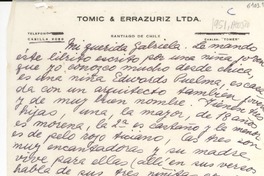 C
1951, AGOSTO
TOMIC & ERRAZURIZ LTDA.
SANTIAGO DE CHILE
CASILLA
CABLES: "TOMER"
Mi querida Gabriela: Le mando
este librito escrito por una niña joven
que yo conozco mucho desde chica,
es una niña Edwards Puelma, casa-
da con un arquitecto también joven
y de muy buen nombre. Tiene tres
hijas, una, la mayor, de 13 años
es morena, la 2ª es castaño y la menor
es de pelo rojo tiziano. Las tres son
muy encantadoras y su madre
vive para ellas (allí en sus versos
habla de sus tres niñitas